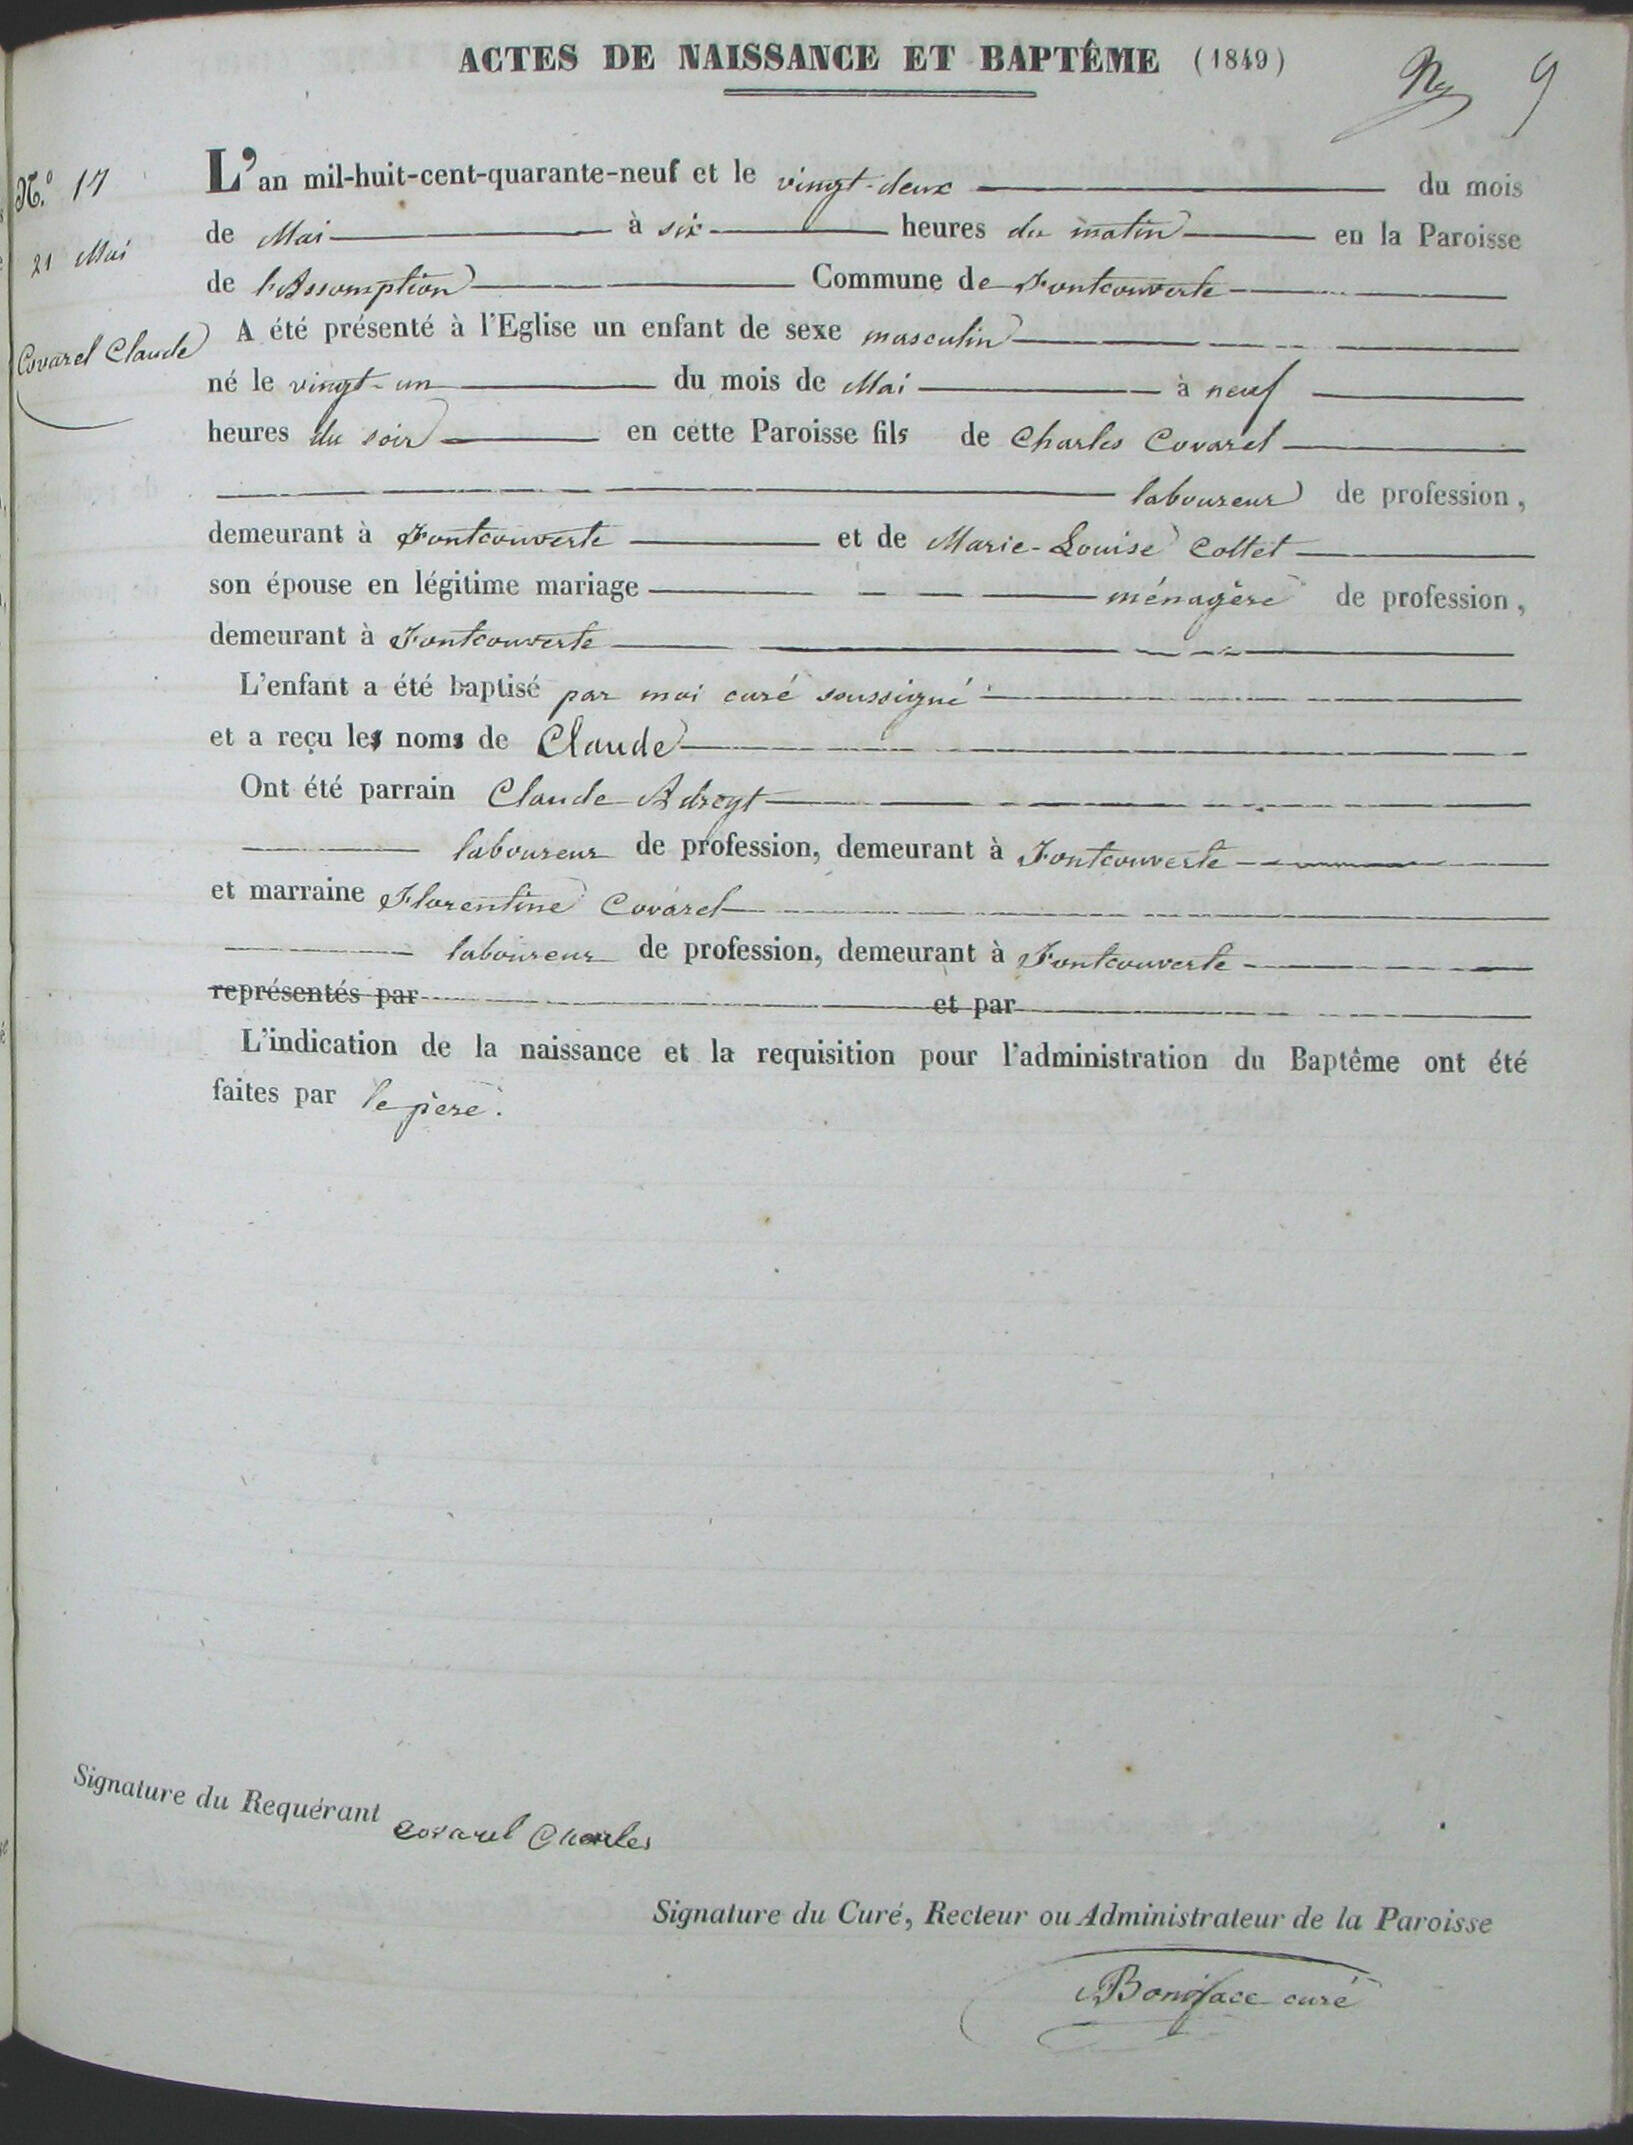 ACTES DE NAISSANCE ET BAPTÊME (1849)
9
N.º 17
21 Mai
Covarel Claude
L'an mil-huit-cent-quarante-neuf et le vingt-deux du mois
de Mai à six heures du matin en la Paroisse
de l'Assomption Commune de Fontcouverte
A été présenté à l'Eglise un enfant de sexe masculin
né le vingt-un du mois de Mai à neuf
heures du soir en cette Paroisse fils de Charles Covarel
laboureur de profession,
demeurant à Fontcouverte et de Marie-Louise Collet
son épouse en légitime mariage ménagère de profession,
demeurant à Fontcouverte
L'enfant a été baptisé par moi curé soussigné
et a reçu les noms de Claude
Ont été parrain Claude Adreyt
laboureur de profession, demeurant à Fontcouverte
et marraine Florentine Covarel
laboureur de profession, demeurant à Fontcouverte
représentés par et par
L'indication de la naissance et la requisition pour l'administration du Baptême ont été
faites par le père.
Signature du Requérant Covarel Charles
Signature du Curé, Recteur ou Administrateur de la Paroisse
Boniface curé